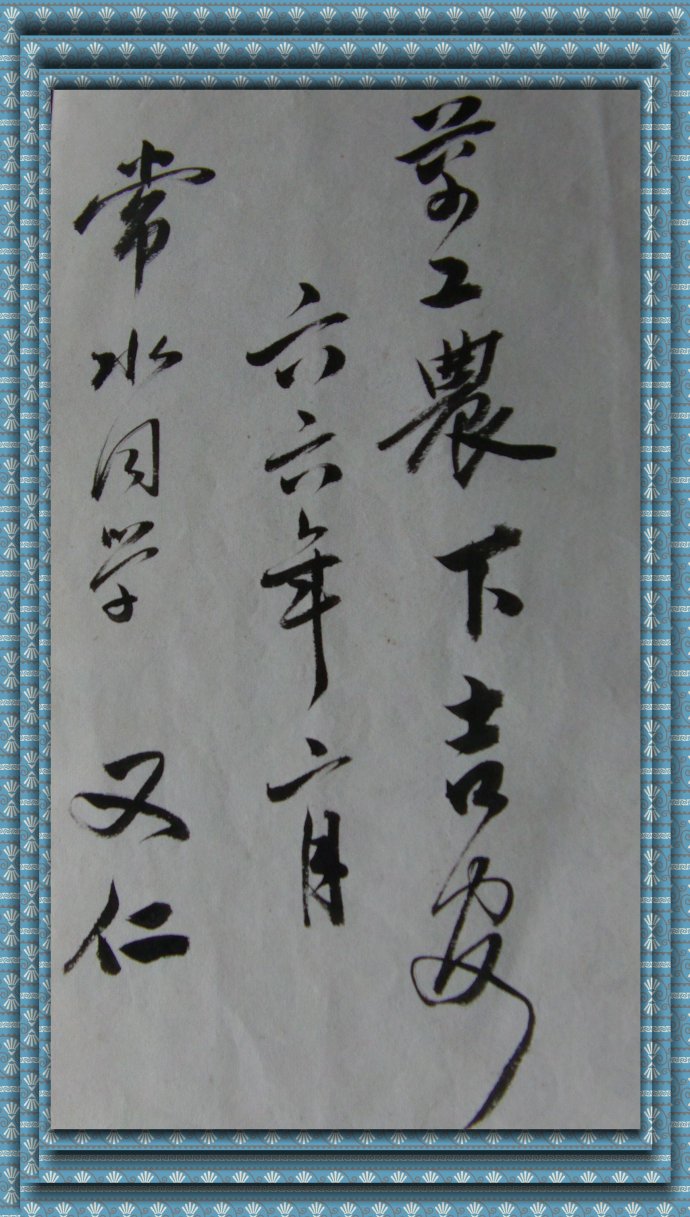 萬工農下吉安
六六年二月
常水同学 又仁